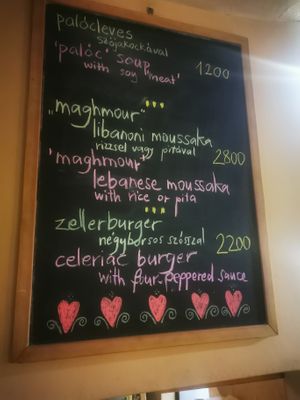 palócleves
szójakockával
'palóc' soup
with soy 'meat' 1200
„maghmour"
libanoni moussaka
rizzsel vagy pitával
'maghmour' 2800
lebanese moussaka
with rice or pita
zellerburger
négyborsos szósszal
celeriac burger 2200
with four-peppered sauce